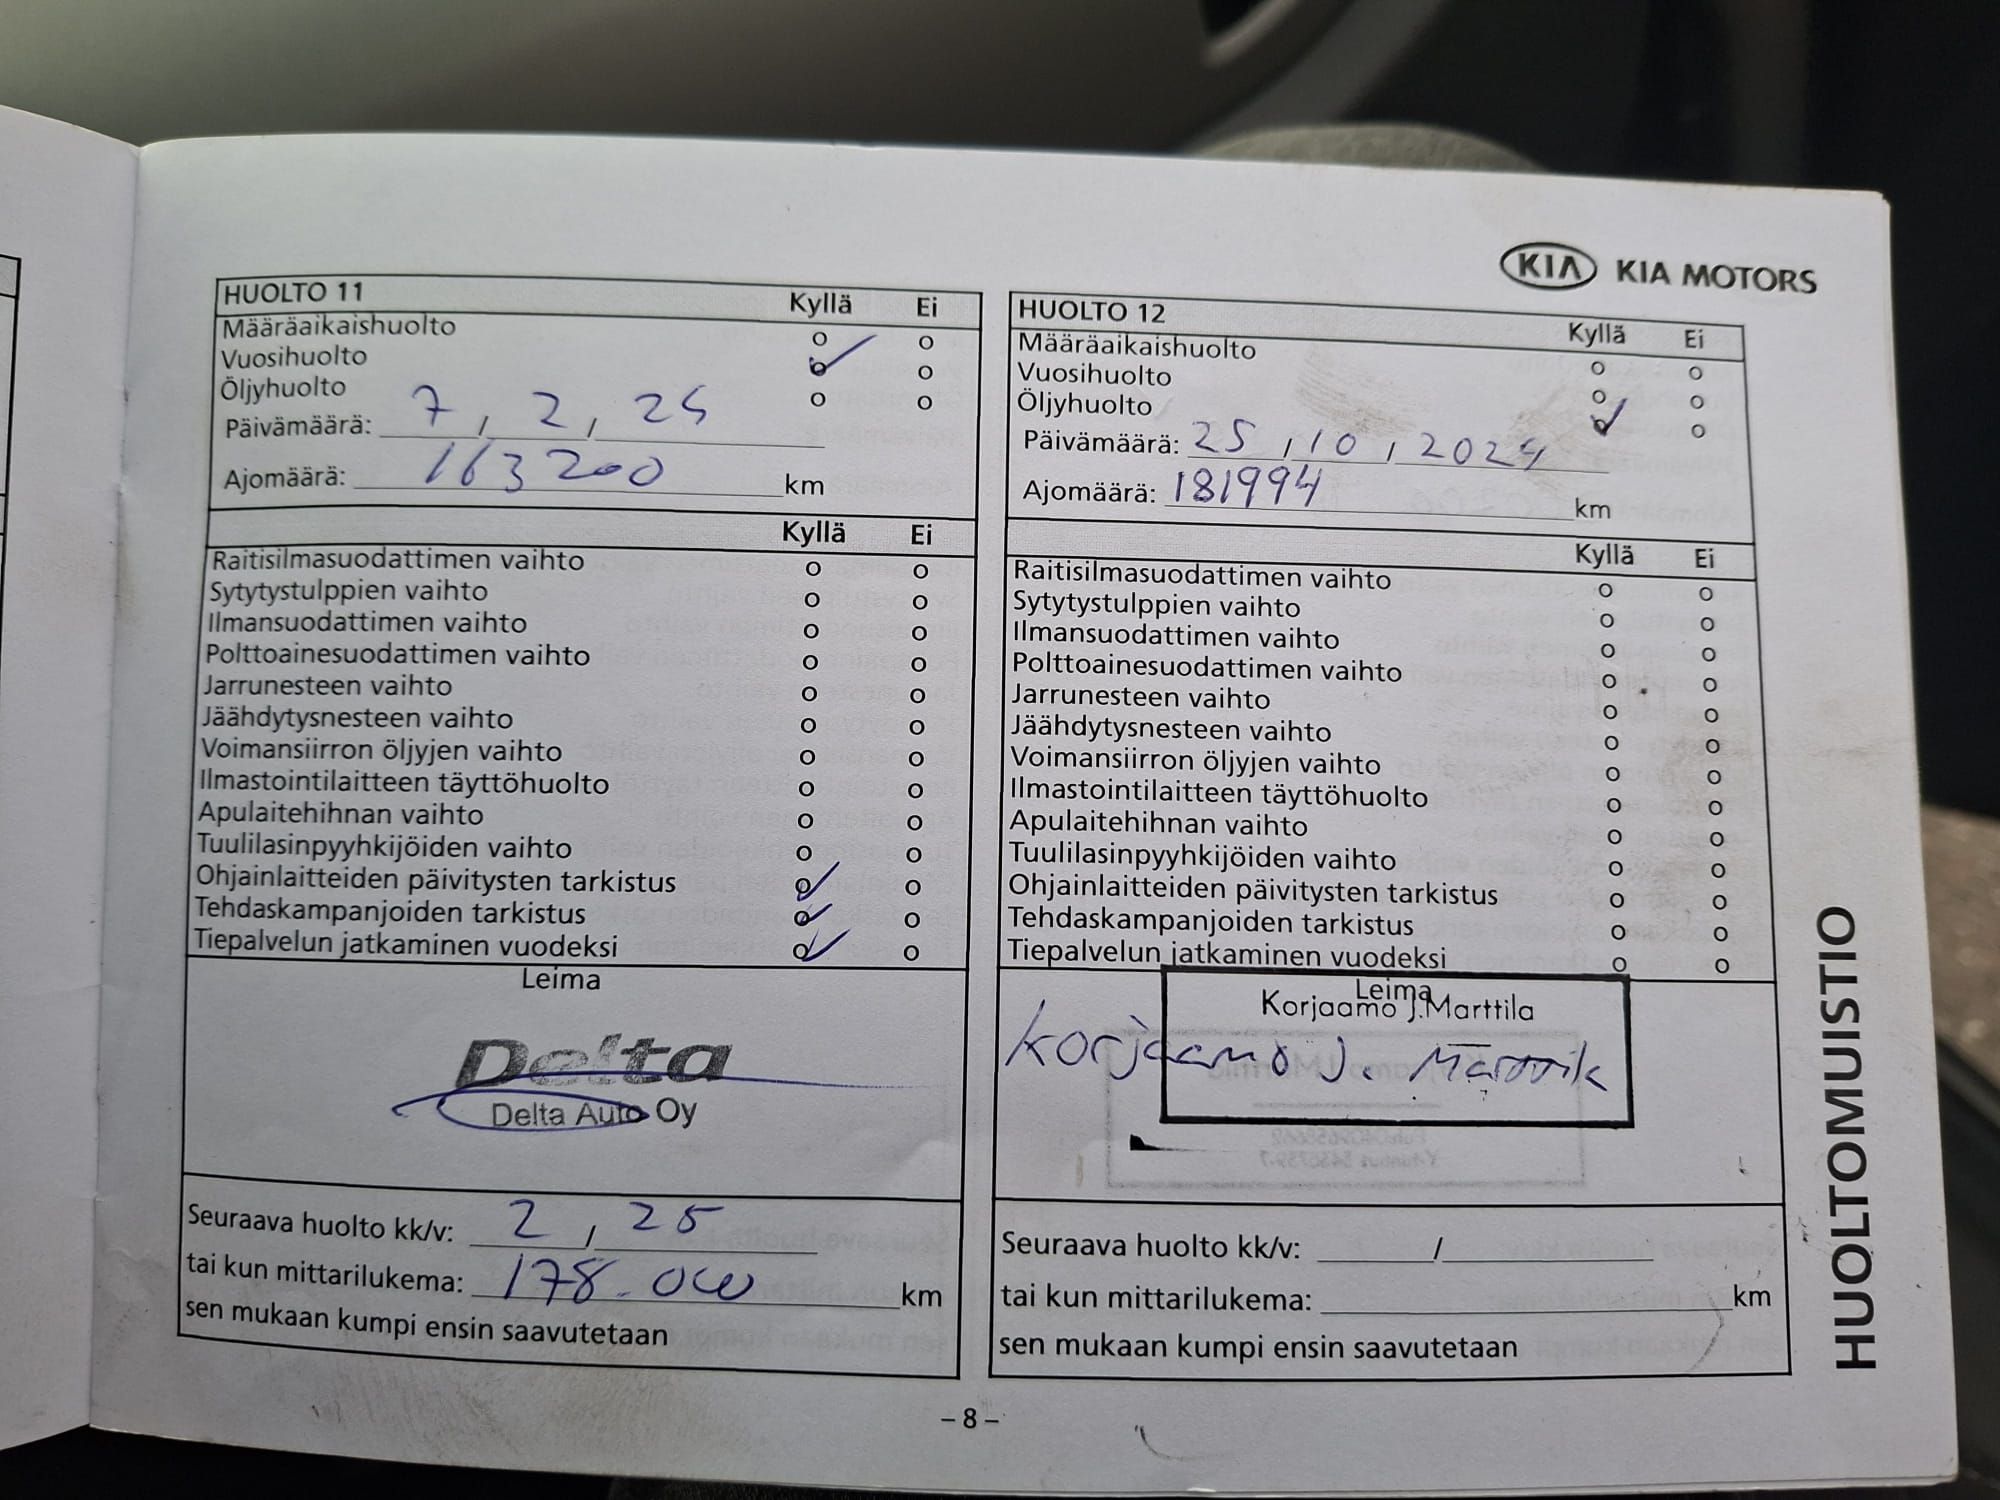 KIA KIA MOTORS
HUOLTO 11 Kyllä Ei
Määräaikaishuolto o o
Vuosihuolto o o
Öljyhuolto o o
Päivämäärä: 7 / 2 / 25
Ajomäärä: 163200 km
Kyllä Ei
Raitisilmasuodattimen vaihto o o
Sytytystulppien vaihto o o
Ilmansuodattimen vaihto o o
Polttoainesuodattimen vaihto o o
Jarrunesteen vaihto o o
Jäähdytysnesteen vaihto o o
Voimansiirron öljyjen vaihto o o
Ilmastointilaitteen täyttöhuolto o o
Apulaitehihnan vaihto o o
Tuulilasinpyyhkijöiden vaihto o o
Ohjainlaitteiden päivitysten tarkistus o o
Tehdaskampanjoiden tarkistus o o
Tiepalvelun jatkaminen vuodeksi o o
Leima
Delta
Delta Auto Oy
Seuraava huolto kk/v: 2 / 25
tai kun mittarilukema: 178.000 km
sen mukaan kumpi ensin saavutetaan
HUOLTO 12 Kyllä Ei
Määräaikaishuolto o o
Vuosihuolto o o
Öljyhuolto o o
Päivämäärä: 25 / 10 / 2024
Ajomäärä: 181994 km
Kyllä Ei
Raitisilmasuodattimen vaihto o o
Sytytystulppien vaihto o o
Ilmansuodattimen vaihto o o
Polttoainesuodattimen vaihto o o
Jarrunesteen vaihto o o
Jäähdytysnesteen vaihto o o
Voimansiirron öljyjen vaihto o o
Ilmastointilaitteen täyttöhuolto o o
Apulaitehihnan vaihto o o
Tuulilasinpyyhkijöiden vaihto o o
Ohjainlaitteiden päivitysten tarkistus o o
Tehdaskampanjoiden tarkistus o o
Tiepalvelun jatkaminen vuodeksi o o
Leima
Korjaamo J.Marttila
Korjaamo J.
Seuraava huolto kk/v: /
tai kun mittarilukema: km
sen mukaan kumpi ensin saavutetaan
HUOLTOMUISTIO
– 8 –